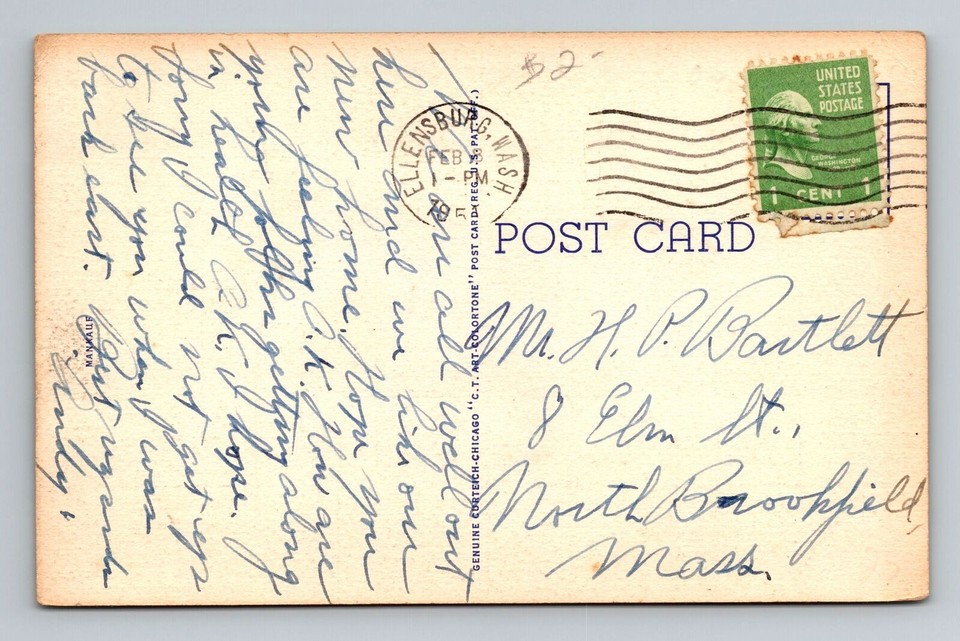 $2-
ELLENSBURG, WASH.
FEB
1 - PM
19
UNITED
STATES
POSTAGE
GEORGE
WASHINGTON
1 CENT 1
POST CARD
GENUINE CURTEICH-CHICAGO "C.T. ART-COLORTONE" POST CARD (REG. U.S. PAT. OFF.)
MANKAUF
are all well out
here and we like our
new home. Hope you
are feeling O.K. How are
your folks getting along
in health O.K. I hope.
Sorry I could not get up
to see you when I was
back east. Best regards
Mr. H. P. Bartlett
8 Elm St.,
North Brookfield,
Mass.